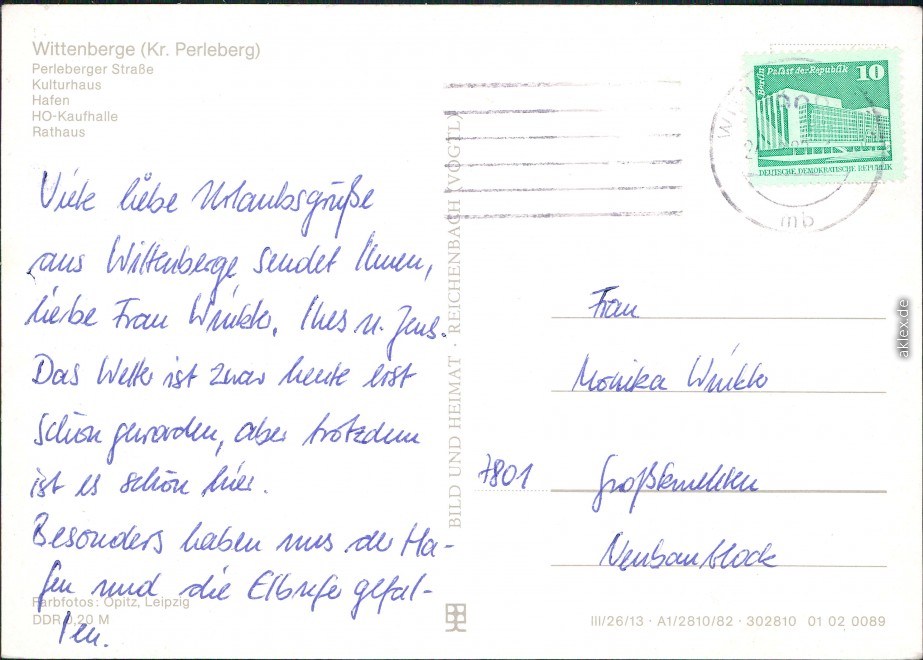 Wittenberge (Kr. Perleberg)
Perleberger Straße
Kulturhaus
Hafen
HO-Kaufhalle
Rathaus
Viele liebe Urlaubsgrüße
aus Wittenberge sendet Ihnen,
liebe Frau Winkler, Ines u. Jens.
Das Wetter ist zwar heute erst
schön geworden, aber trotzdem
ist es schön hier.
Besonders haben uns der Ha-
fen und die Elbufer gefal-
len.
Farbfotos: Opitz, Leipzig
DDR 0,20 M
BILD UND HEIMAT · REICHENBACH (VOGTL)
Berlin Palast der Republik 10
DEUTSCHE DEMOKRATISCHE REPUBLIK
mb
Frau
Monika Winkler
7801 Großkmehlen
Neubaublock
III/26/13 · A1/2810/82 · 302810 01 02 0089
aklex.de